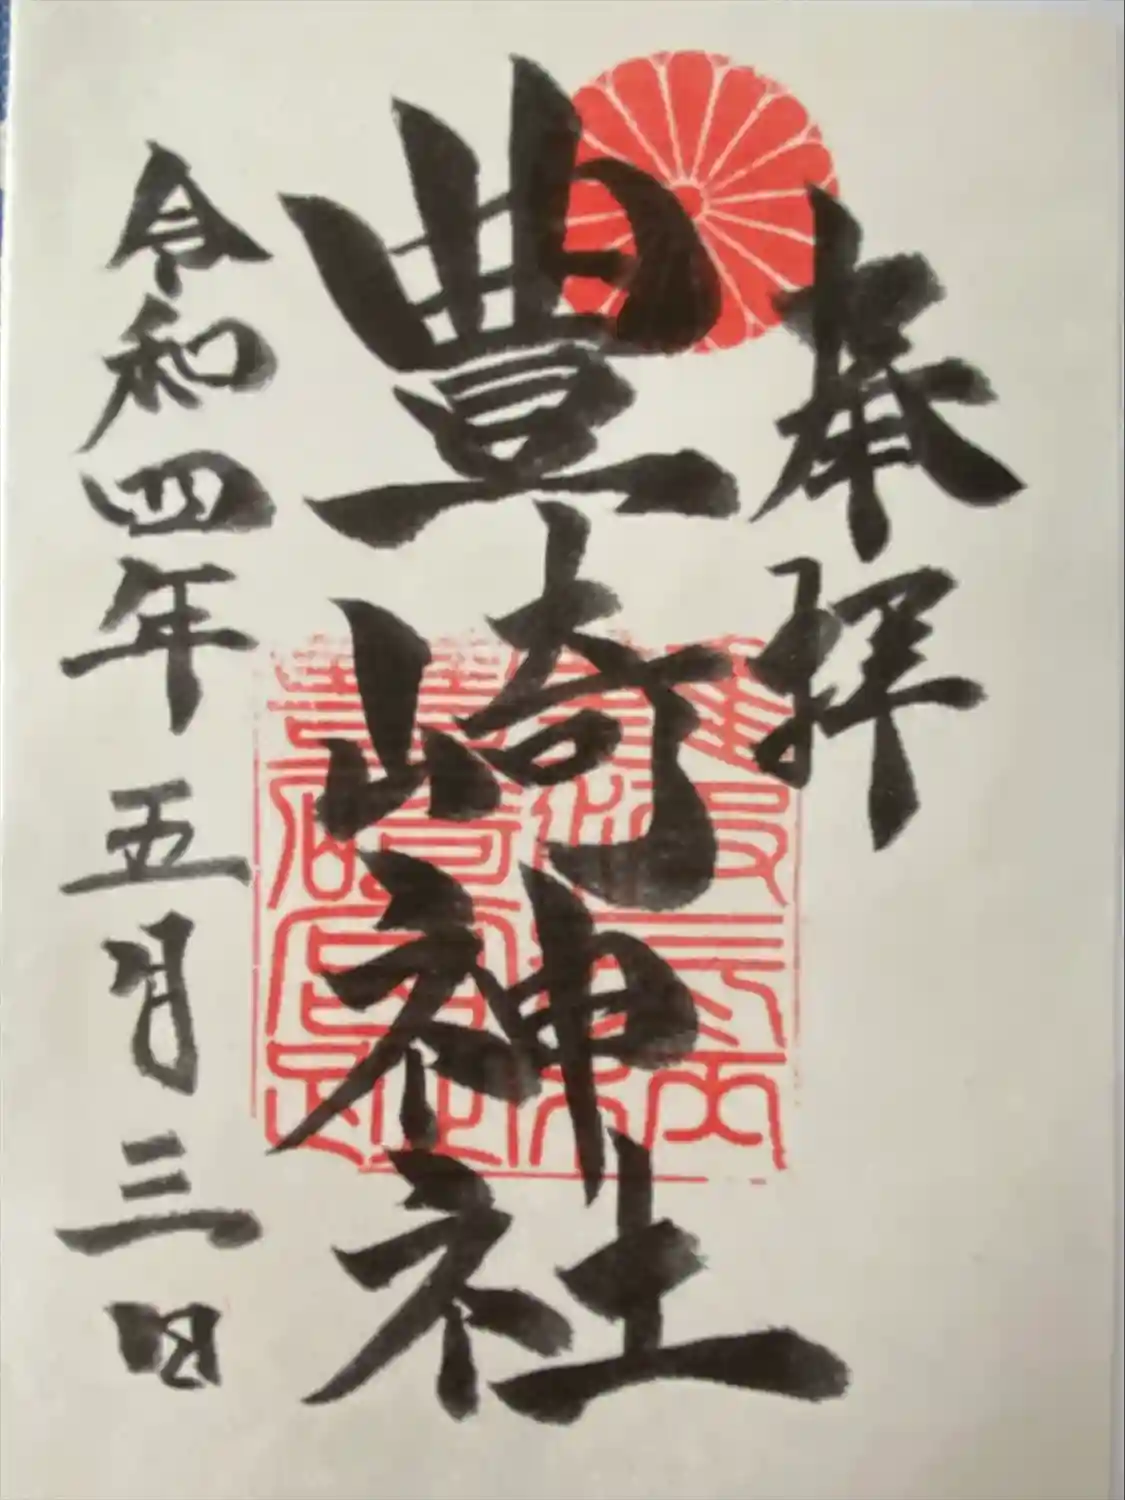 奉拝
豊崎神社
令和四年五月三日